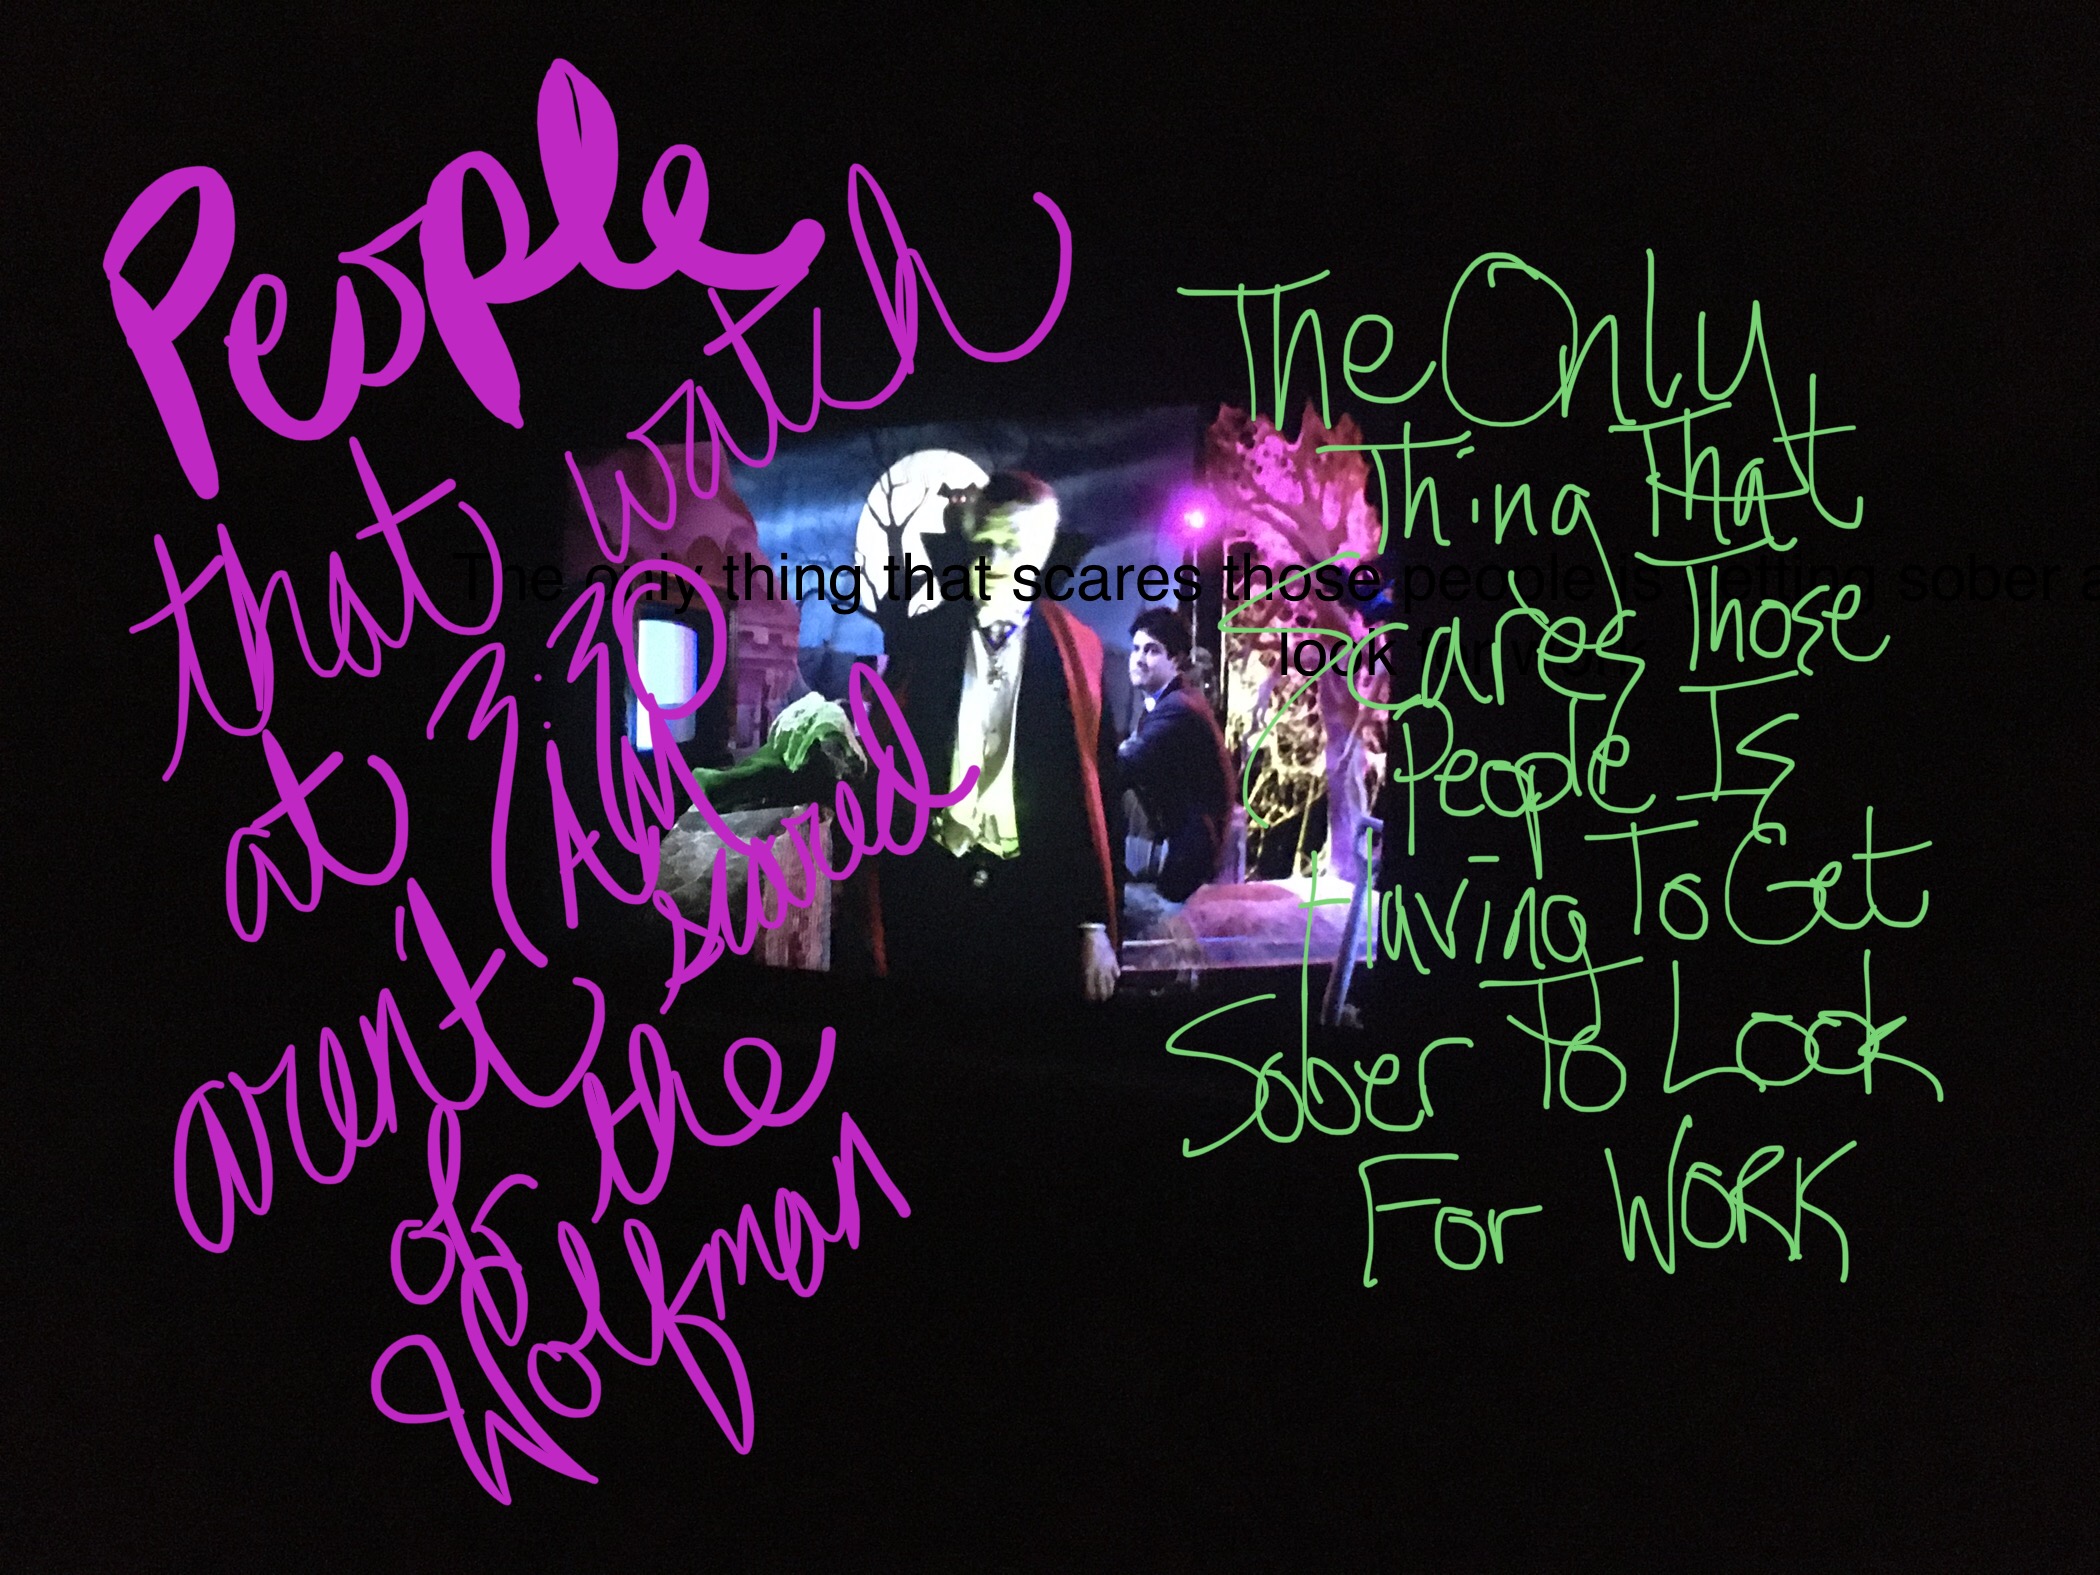 People
that watch
at 3:30 AM
aren't scared
of the
Wolfman
The only thing that scares those people is getting sober a
look for work
The Only
Thing That
Scares Those
People Is
Having To Get
Sober To Look
For WORK